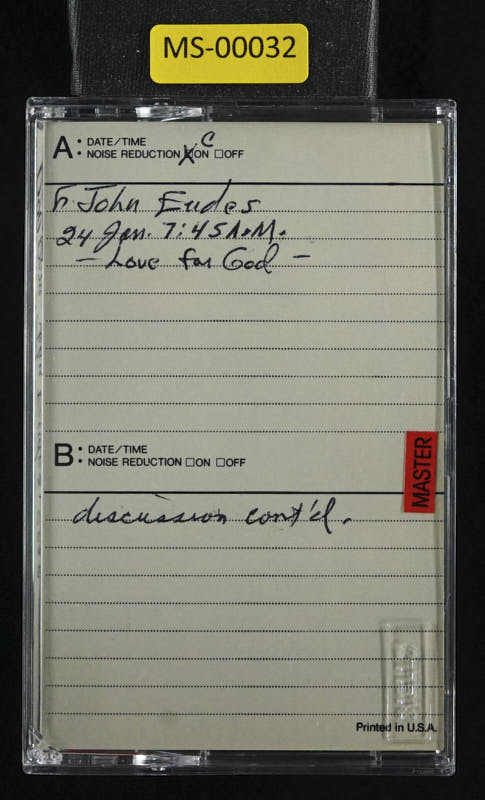 MS-00032
A: DATE/TIME
C
NOISE REDUCTION ☒ON ☐OFF
Fr John Eudes
24 Jan. 7:45 A.M.
— Love for God —
B: DATE/TIME
NOISE REDUCTION ☐ON ☐OFF
MASTER
discussion cont'd.
Printed in U.S.A.